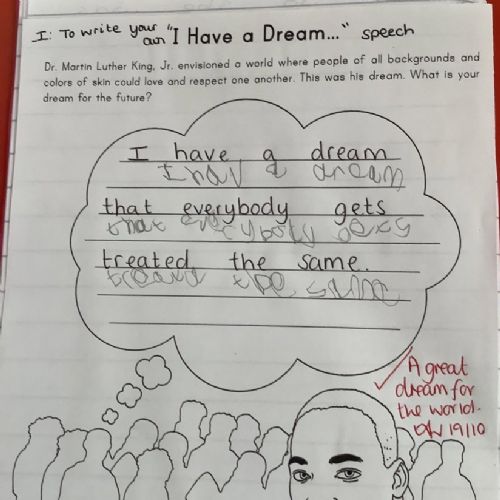 I: To write your "I Have a Dream..." speech
own
Dr. Martin Luther King, Jr. envisioned a world where people of all backgrounds and
colors of skin could love and respect one another. This was his dream. What is your
dream for the future?
I have a dream
I hav a dream
that everybody gets
that everybody gets
treated the same.
treard the same
A great
dream for
the world.
19/10